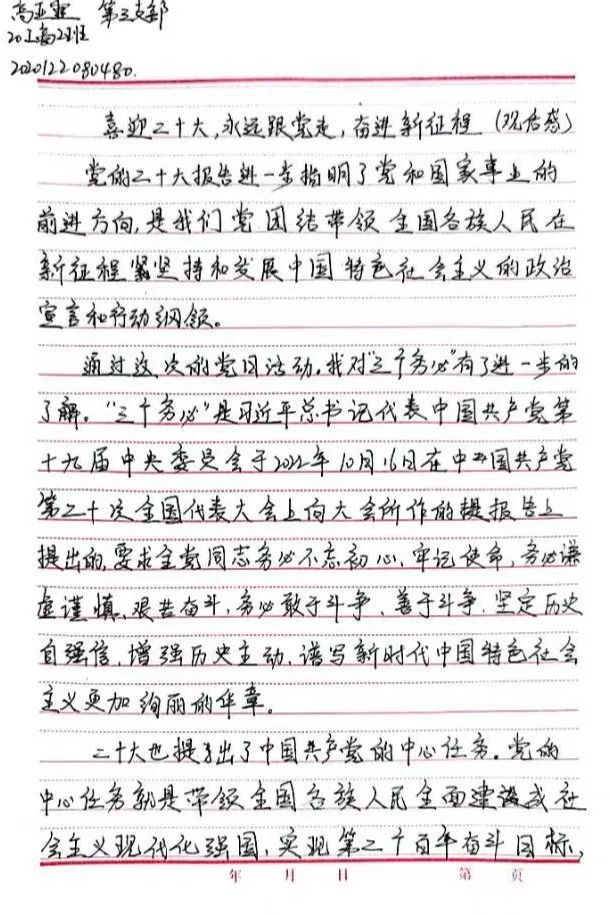 高亚 第三支部
20工商2班
202012208 0480.
喜迎二十大,永远跟党走,奋进新征程(观后感)
党的二十大报告进一步指明了党和国家事业的
前进方向,是我们党团结带领全国各族人民在
新征程坚持和发展中国特色社会主义的政治
宣言和行动纲领。
通过这次的党日活动,我对"三个务必"有了进一步的
了解。"三个务必"是习近平总书记代表中国共产党第
十九届中央委员会于2022年10月16日在中国共产党
第二十次全国代表大会上向大会所作的报告上
提出的,要求全党同志务必不忘初心、牢记使命,务必谦
虚谨慎、艰苦奋斗,务必敢于斗争、善于斗争,坚定历史
自信,增强历史主动,谱写新时代中国特色社会
主义更加绚丽的华章。
二十大也提出了中国共产党的中心任务。党的
中心任务就是带领全国各族人民全面建成社
会主义现代化强国,实现第二个百年奋斗目标,
年 月 日 第 页